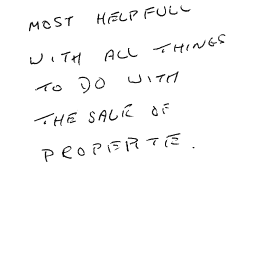 MOST HELPFULL
WITH ALL THINGS
TO DO WITH
THE SALE OF
PROPERTIE.